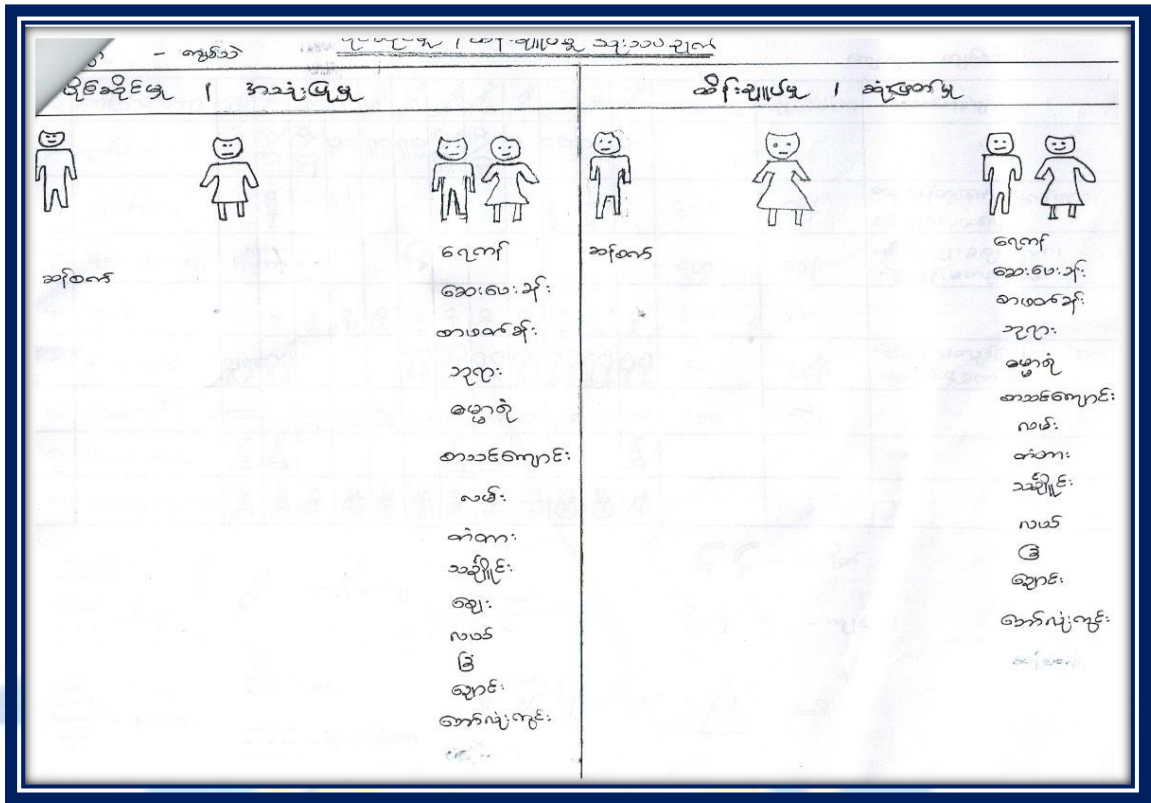 ပိုင်ဆိုင်မှု / ထိန်းချုပ်မှု သုံးသပ်ချက်
- ကျွဲသဲ
ပိုင်ဆိုင်မှု / အသုံးပြုမှု
ဆန်စက်
ရေကန်
ဆေးပေးခန်း
စာဖတ်ခန်း
ဘုရား
ဓမ္မာရုံ
စာသင်ကျောင်း
လမ်း
တံတား
သင်္ချိုင်း
ချေး
လယ်
ခြံ
ချောင်း
ဘော်လုံးကွင်း
ထိန်းချုပ်မှု / ဆုံးဖြတ်မှု
ဆန်စက်
ရေကန်
ဆေးပေးခန်း
စာဖတ်ခန်း
ဘုရား
ဓမ္မာရုံ
စာသင်ကျောင်း
လမ်း
တံတား
သင်္ချိုင်း
လယ်
ခြံ
ချောင်း
ဘော်လုံးကွင်း